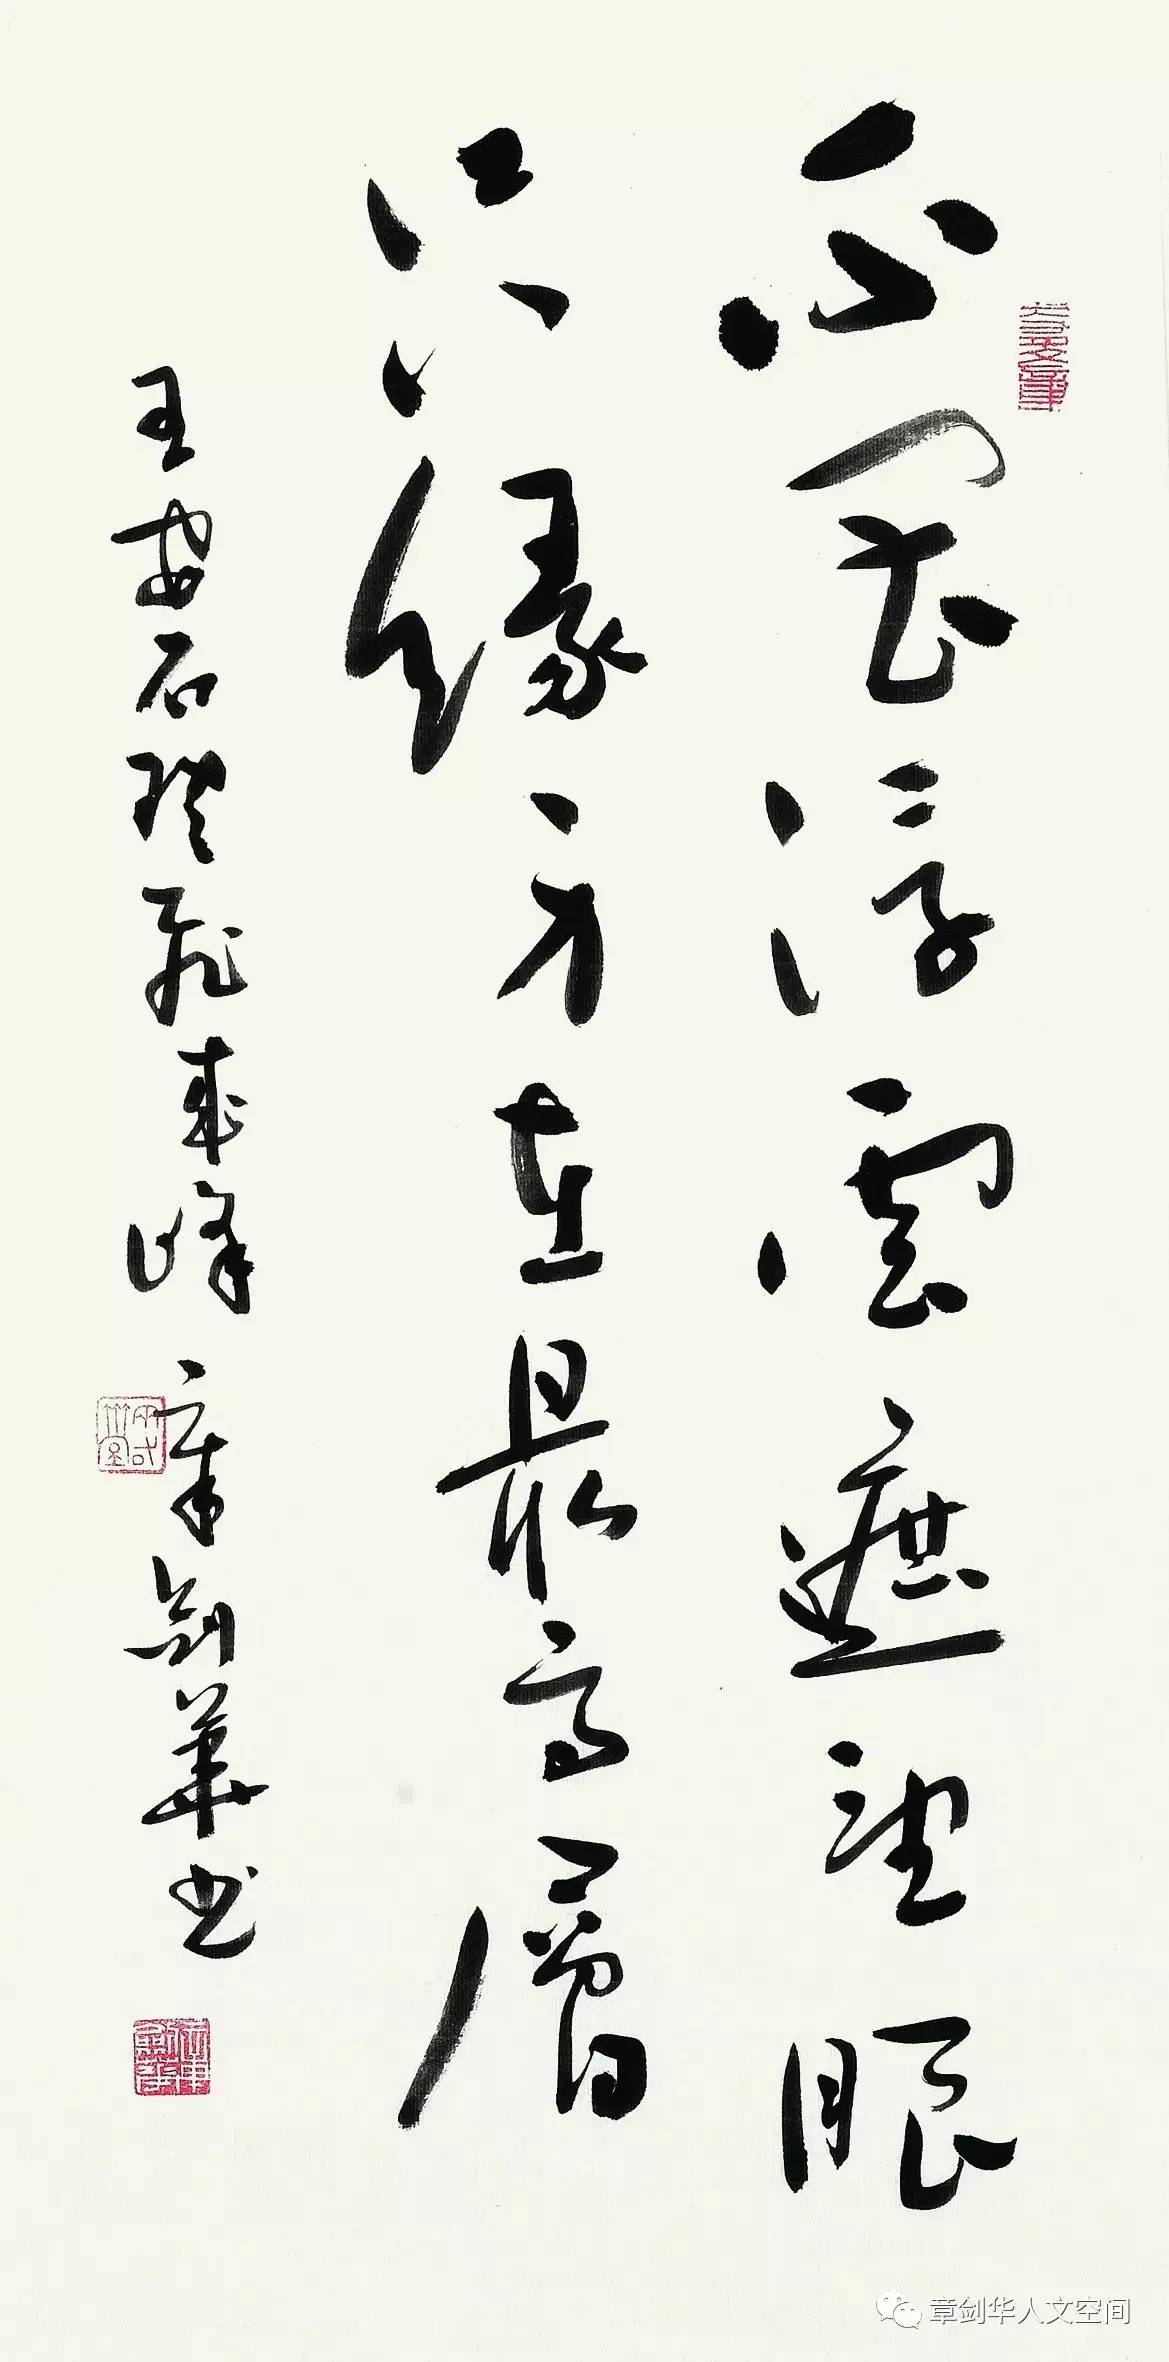 不畏浮雲遮望眼
只緣身在最高層
王安石登飛來峰 章劍華書
章剑华人文空间